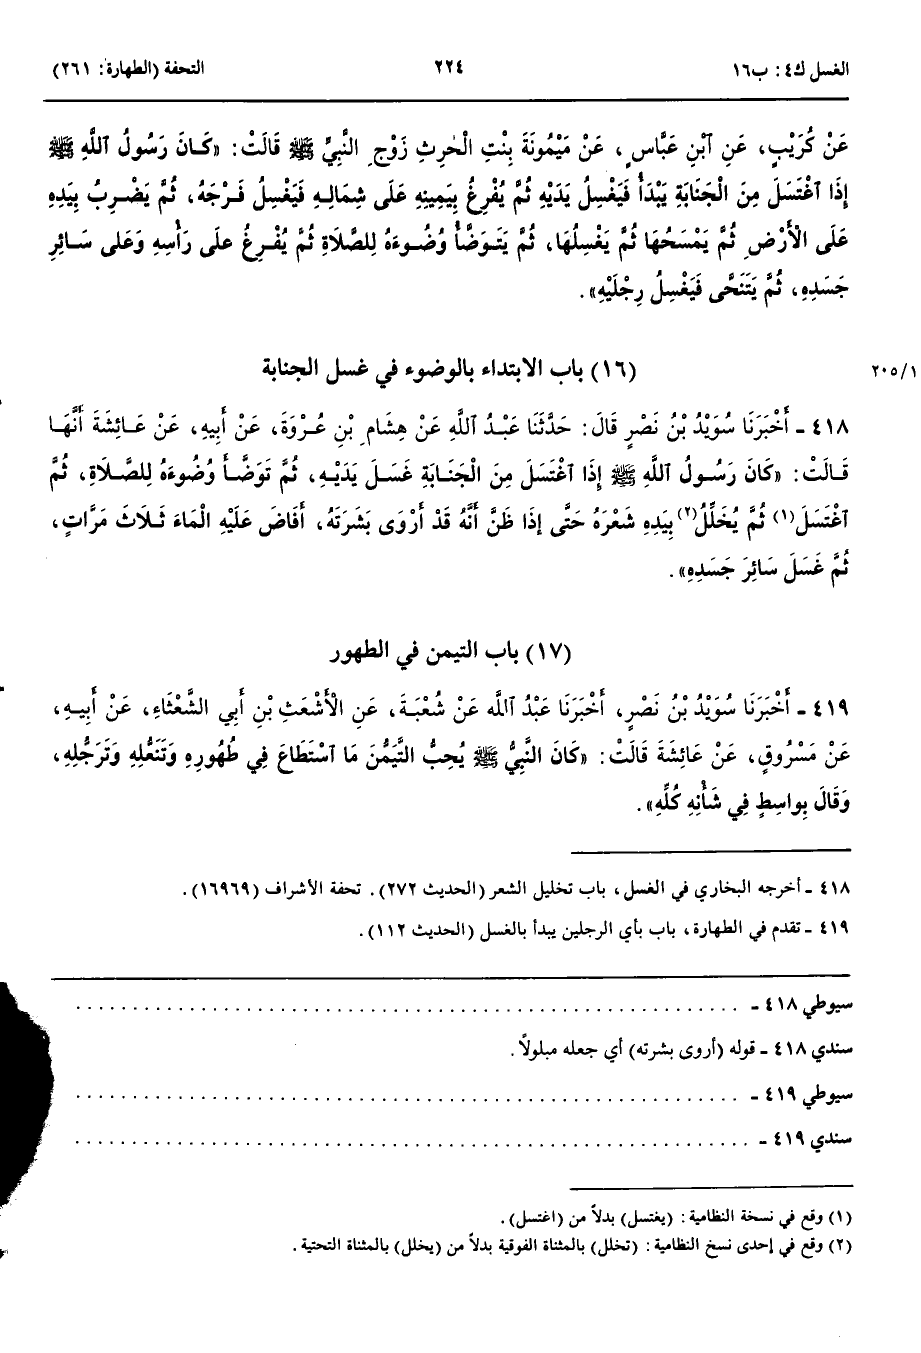 الغسل ك٤: ب١٦
٢٢٤
التحفة (الطهارة: ٢٦١)
عَنْ كُرَيْبٍ، عَنِ ٱبْنِ عَبَّاسٍ، عَنْ مَيْمُونَةَ بِنْتِ الْحٰرِثِ زَوْجِ النَّبِيِّ ﷺ قَالَتْ: «كَـانَ رَسُولُ ٱللَّهِ ﷺ
إِذَا ٱغْتَسَلَ مِنَ الْجَنَابَةِ يَبْدَأُ فَيَغْسِلُ يَدَيْهِ ثُمَّ يُفْرِغُ بِيَمِينِهِ عَلَى شِمَالِـهِ فَيَغْسِلُ فَـرْجَهُ، ثُمَّ يَضْرِبُ بِيَدِهِ
عَلَى الْأَرْضِ ثُمَّ يَمْسَحُهَا ثُمَّ يَغْسِلُهَا، ثُمَّ يَتَـوَضَّأُ وُضُـوءَهُ لِلصَّلَاةِ ثُمَّ يُفْـرِغُ على رَأْسِهِ وَعَلى سَـائِرِ
جَسَدِهِ، ثُمَّ يَتَنَحَّى فَيَغْسِلُ رِجْلَيْهِ».
(١٦) باب الابتداء بالوضوء في غسل الجنابة
٢٠٥/١
٤١٨ ـ أَخْبَرَنَا سُوَيْدُ بْنُ نَصْرٍ قَالَ: حَدَّثَنَا عَبْـدُ اللَّهِ عَنْ هِشَامِ بْنِ عُـرْوَةَ، عَنْ أَبِيهِ، عَنْ عَـائِشَةَ أَنَّهَـا
قَـالَتْ: «كَانَ رَسُـولُ اللَّهِ ﷺ إِذَا ٱغْتَسَلَ مِنَ الْجَنَـابَةِ غَسَـلَ يَدَيْـهِ، ثُمَّ تَوَضَّـأَ وُضُوءَهُ لِلصَّـلَاةِ، ثُمَّ
ٱغْتَسَلَ(١) ثُمَّ يُخَلِّلُ(٢) بِيَدِهِ شَعْرَهُ حَتَّى إِذَا ظَنَّ أَنَّهُ قَدْ أَرْوَى بَشَرَتَهُ، أَفَاضَ عَلَيْهِ الْمَاءَ ثَـلَاثَ مَرَّاتٍ،
ثُمَّ غَسَلَ سَائِرَ جَسَدِهِ».
(١٧) باب التيمن في الطهور
٤١٩ ـ أَخْبَرَنَا سُوَيْدُ بْنُ نَصْرٍ، أَخْبَرَنَا عَبْدُ ٱللَّه عَنْ شُعْبَـةَ، عَنِ الْأَشْعَثِ بْنِ أَبِي الشَّعْثَاءِ، عَنْ أَبِيـهِ،
عَنْ مَسْرُوقٍ، عَنْ عَائِشَةَ قَالَتْ: «كَانَ النَّبِيُّ ﷺ يُحِبُّ التَّيَمُّنَ مَا ٱسْتَطَاعَ فِي طُهُورِهِ وَتَنَعُّلِهِ وَتَرَجُّلِهِ،
وَقَالَ بِواسِطٍ فِي شَأْنِهِ كُلِّهِ».
٤١٨ ـ أخرجه البخاري في الغسل، باب تخليل الشعر (الحديث ٢٧٢). تحفة الأشراف (١٦٩٦٩).
٤١٩ ـ تقدم في الطهارة، باب بأي الرجلين يبدأ بالغسل (الحديث ١١٢).
سيوطي ٤١٨ ـ . . . . . . . . . . . . . . . . . . . . . . . . . . . . . . . . . . . . . . . .
سندي ٤١٨ ـ قوله (أروى بشرته) أي جعله مبلولاً.
سيوطي ٤١٩ ـ . . . . . . . . . . . . . . . . . . . . . . . . . . . . . . . . . . . . . . . .
سندي ٤١٩ ـ . . . . . . . . . . . . . . . . . . . . . . . . . . . . . . . . . . . . . . . .
(١) وقع في نسخة النظامية: (يغتسل) بدلاً من (اغتسل).
(٢) وقع في إحدى نسخ النظامية: (تخلل) بالمثناة الفوقية بدلاً من (يخلل) بالمثناة التحتية.